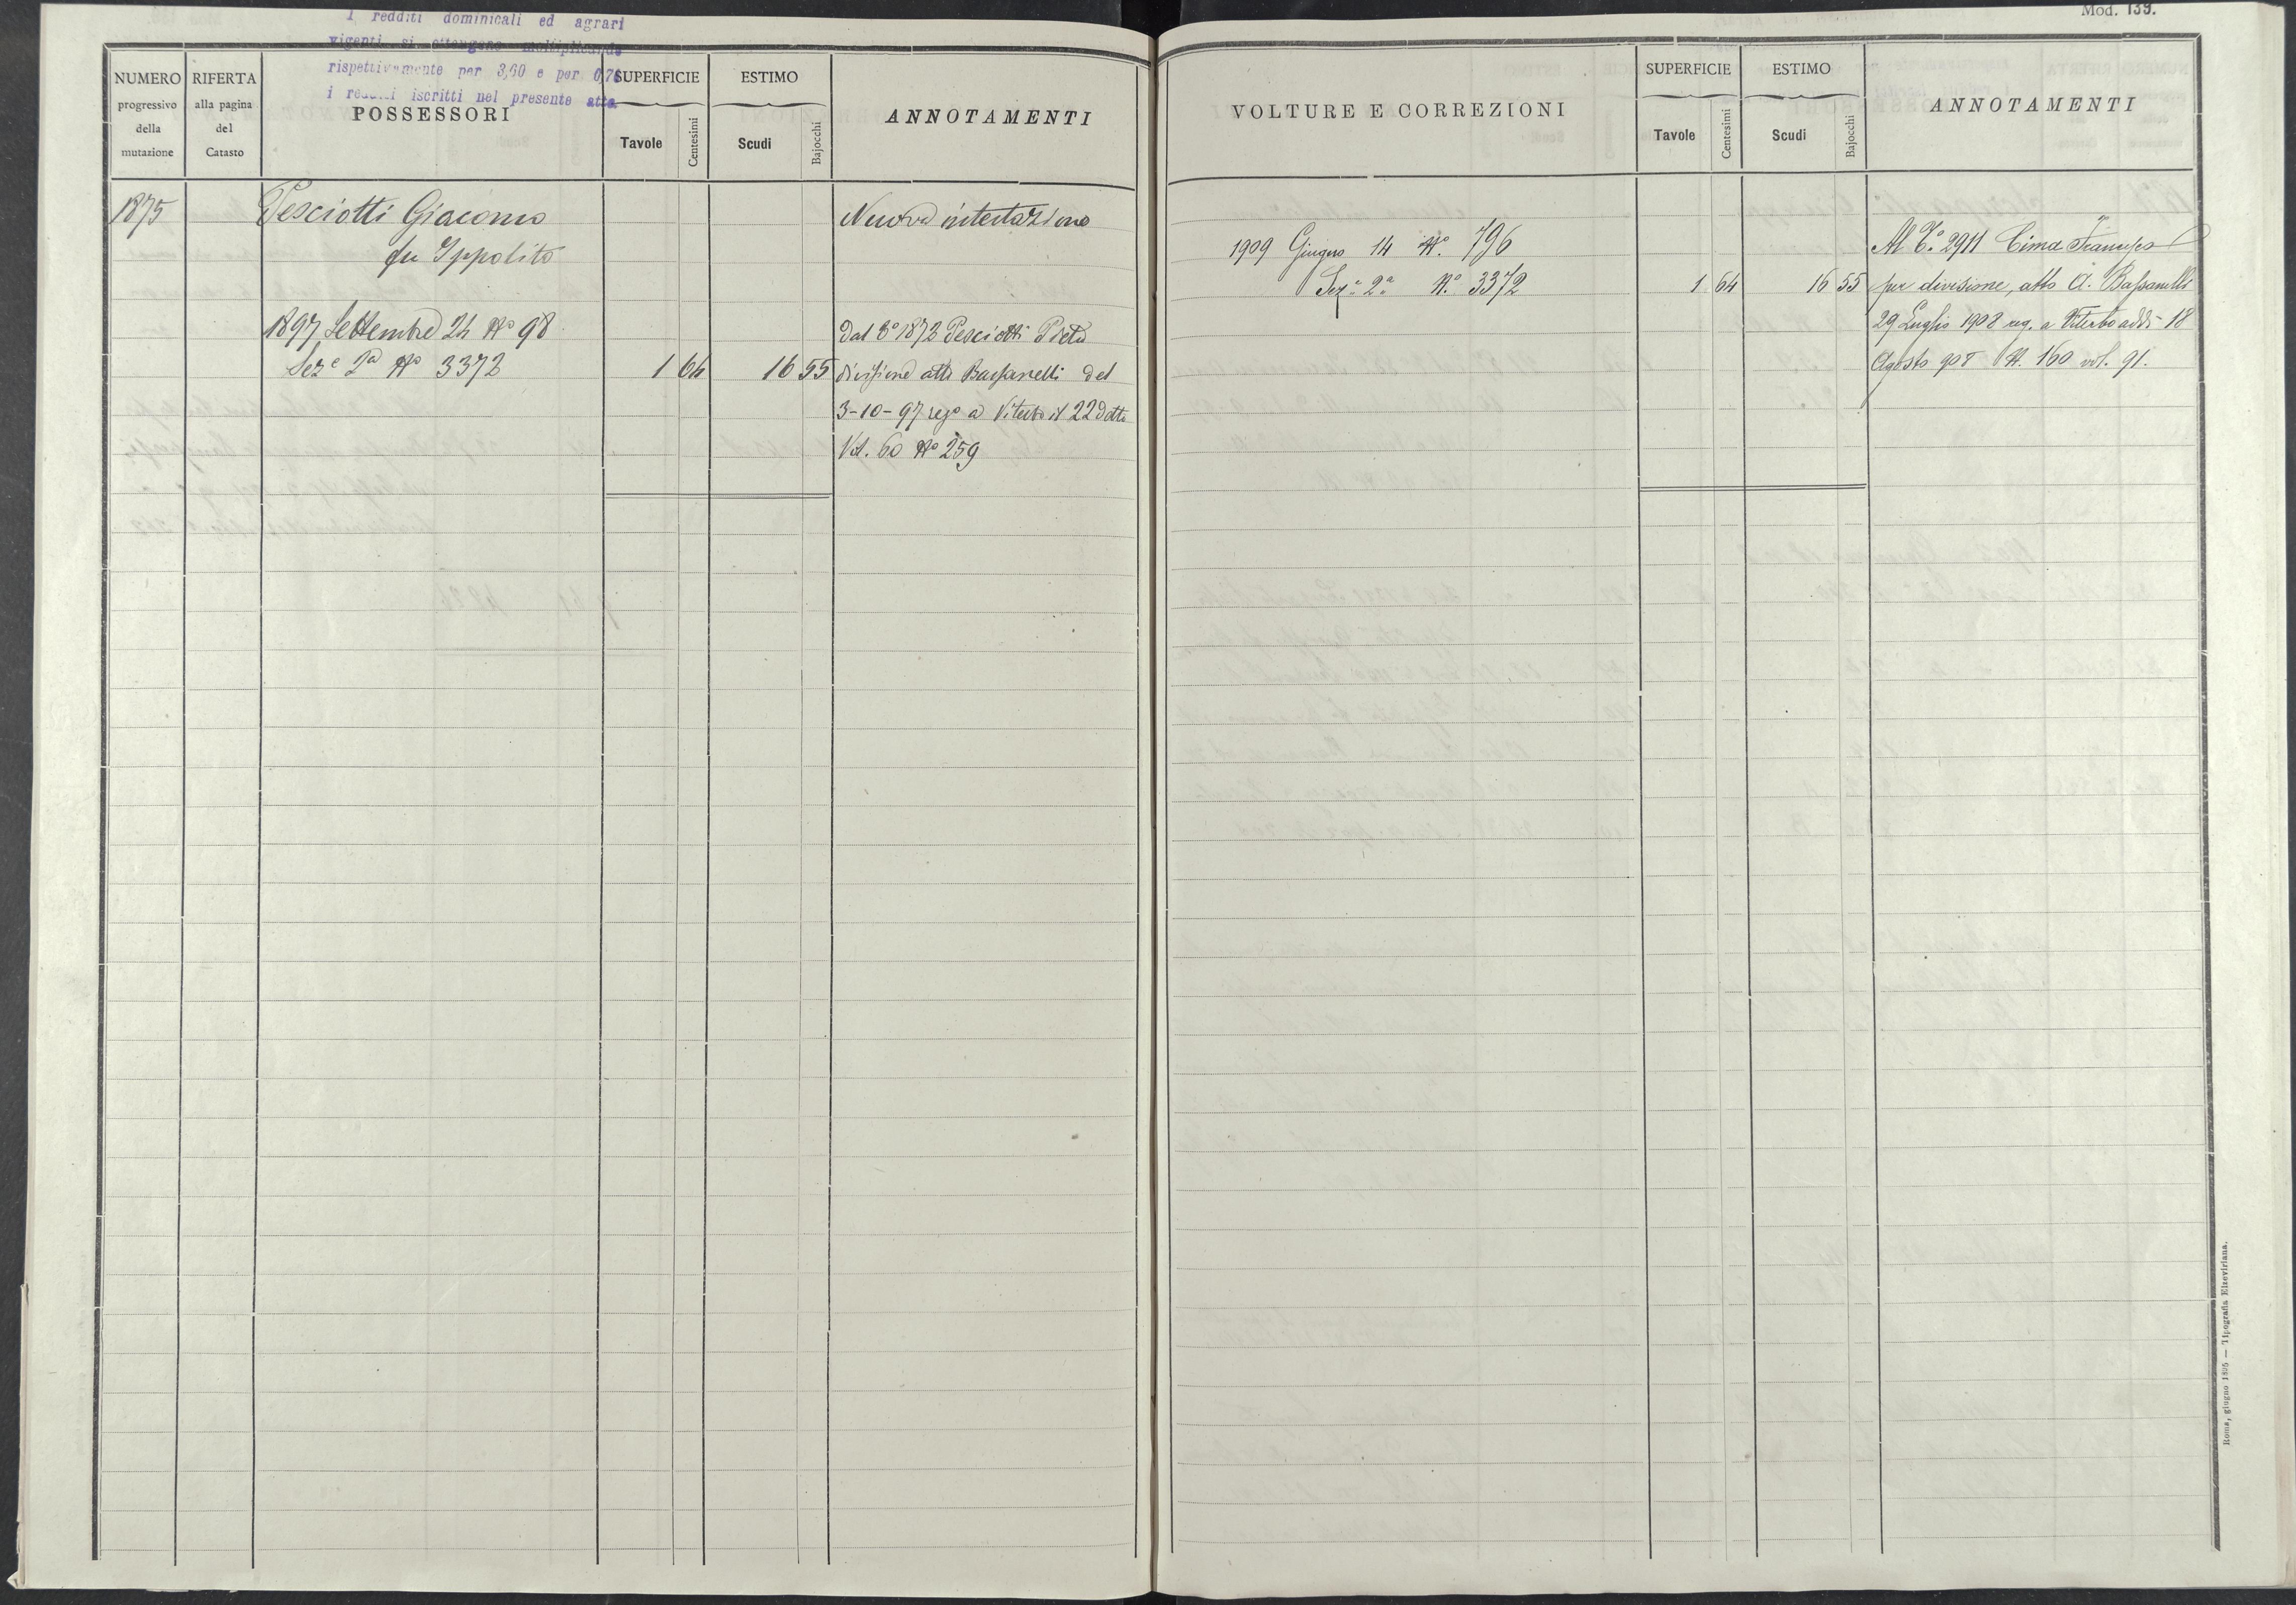 I redditi dominicali ed agrari
vigenti si ottengono moltiplicando
rispettivamente per 3,60 e per 0,76
i redditi iscritti nel presente atto
NUMERO progressivo della mutazione
RIFERTA alla pagina del Catasto
POSSESSORI
SUPERFICIE
Tavole Centesimi
ESTIMO
Scudi Bajocchi
ANNOTAMENTI
1875 Pesciotti Giacomo Nuova intestazione
fu Ippolito
1897 Settembre 24 No 98 Dal Co 1872 Pesciotti
Seze 2a No 3372 1 64 16 55 divisione atto Bassanelli del
3-10-97 rego a Viterbo il 22 detto
Vol. 60 No 259
Mod. 139.
VOLTURE E CORREZIONI
SUPERFICIE
Tavole Centesimi
ESTIMO
Scudi Bajocchi
ANNOTAMENTI
1909 Giugno 14 No. 796 Al Co. 2911 Cima
Seza 2a No. 3372 1 64 16 55 per divisione, atto A. Bassanelli
29 Luglio 1908 reg. a Viterbo addì 18
Agosto 908 N. 160 vol. 91.
Roma, giugno 1895 — Tipografia Elzeviriana.